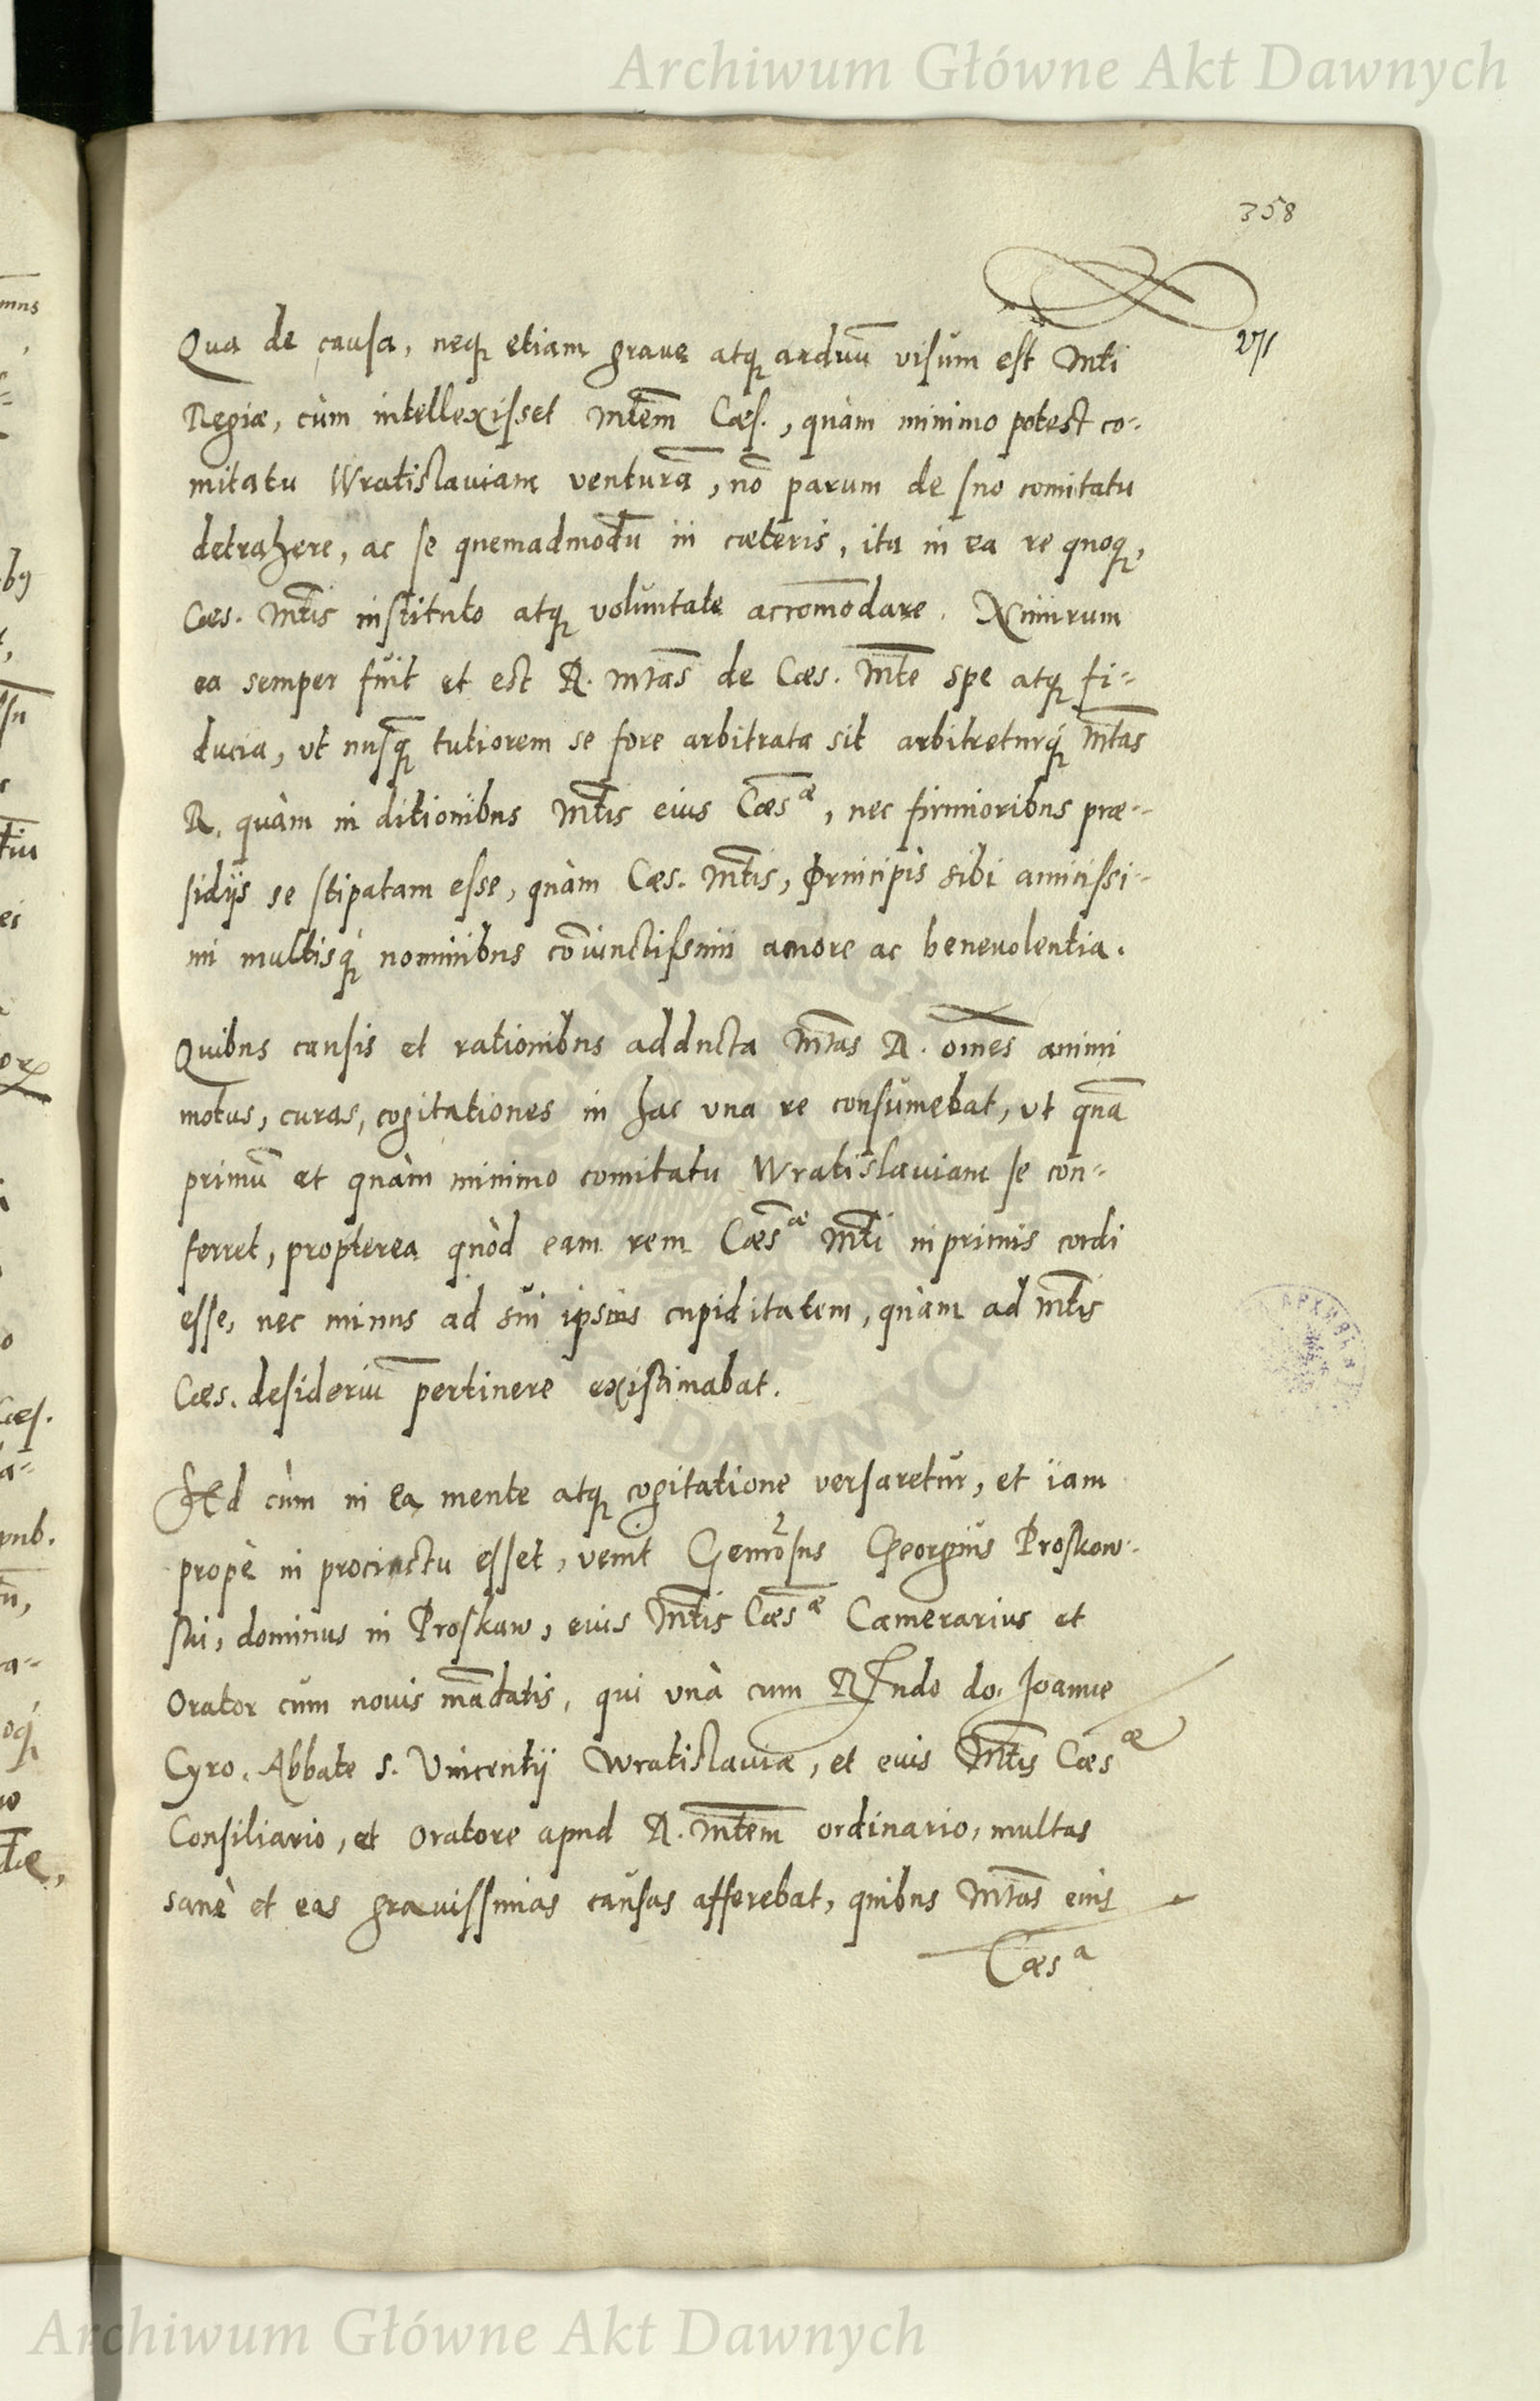 Archiwum Główne Akt Dawnych
358
Qua de causa, neq₃ etiam graue atq₃ arduū visum est Mti
Regiæ, cùm intellexisset Mtem Cæs., quàm minimo potest co-
mitatu Wratislauiam venturā, nō parum de suo comitatu
detrahere, ac se quemadmodū in cæteris, ita in ea re quoq₃,
Cæs. Mtis instituto atq₃ voluntate accomodare. Nimirum
ea semper fuit et est R. Mtas de Cæs. Mte spe atq₃ fi-
ducia, vt nusq̄ tutiorem se fore arbitrata sit arbitreturq́₃ Mtas
R. quàm in ditionibus Mtis eius Cæsᵃᵉ, nec firmioribus præ-
sidijs se stipatam esse, quàm Cæs. Mtis, Principis sibi amicissi-
mi multisq́₃ nominibus cōiunctissimi amore ac beneuolentia.
Quibus causis et rationibus adducta Mtas R. omēs animi
motus, curas, cogitationes in hac vna re consumebat, vt quā
primū et quàm minimo comitatu Wratislauiam se con-
ferret, propterea quòd eam rem Cæsᵃᵉ Mti inprimis cordi
esse, nec minus ad sui ipsius cupiditatem, quàm ad Mtis
Cæs. desideriū pertinere existimabat.
Sed cùm in ea mente atq₃ cogitatione versaretur, et iam
propè in procinctu esset, venit Genrosus Georgius Proskow-
ski, dominus in Proskaw, eius Mtis Cæsᵃᵉ Camerarius et
Orator cum nouis mādatis, qui vnà cum Rndo do. Joanne
Cyro. Abbate S. Vincentij Wratislauiæ, et eius Mtis Cæsᵃᵉ
Consiliario, et Oratore apud R. Mtem ordinario, multas
sanè et eas grauissimas causas afferebat, quibus Mtas eius
Cæsᵃ
Archiwum Główne Akt Dawnych